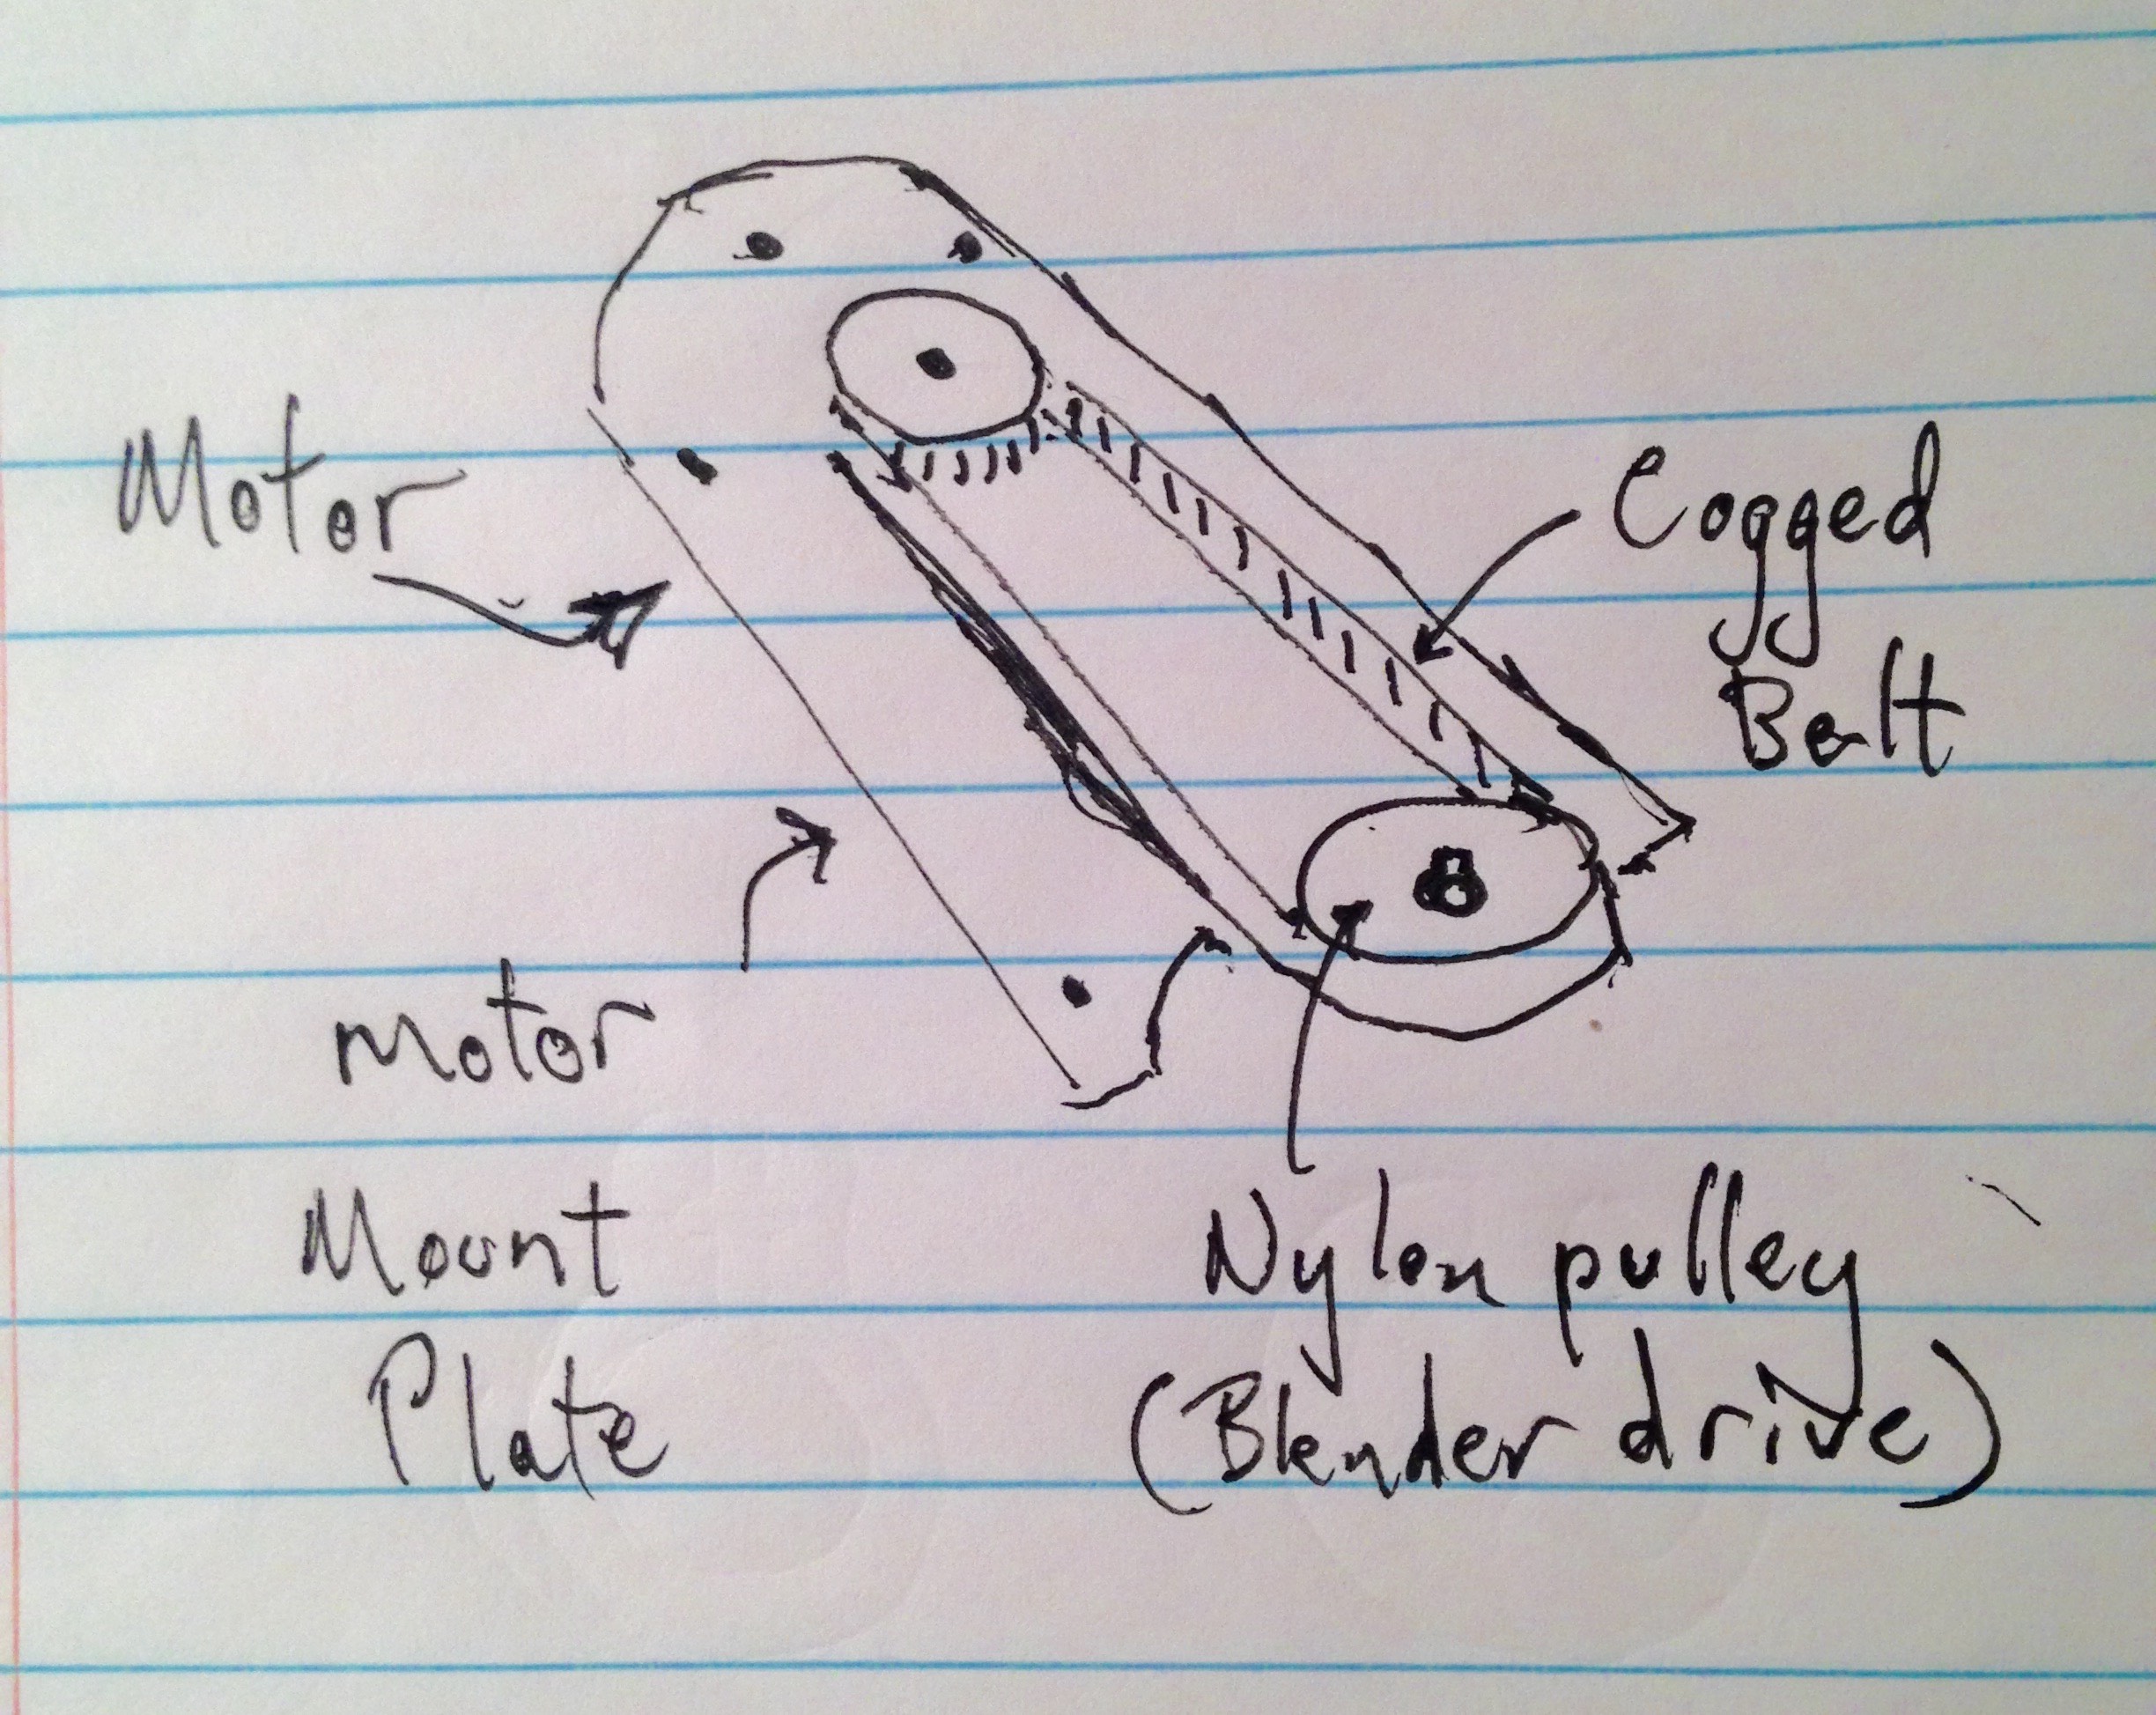 Motor
Cogged
Belt
Motor
Mount
Plate
Nylon pulley
(Blender drive)